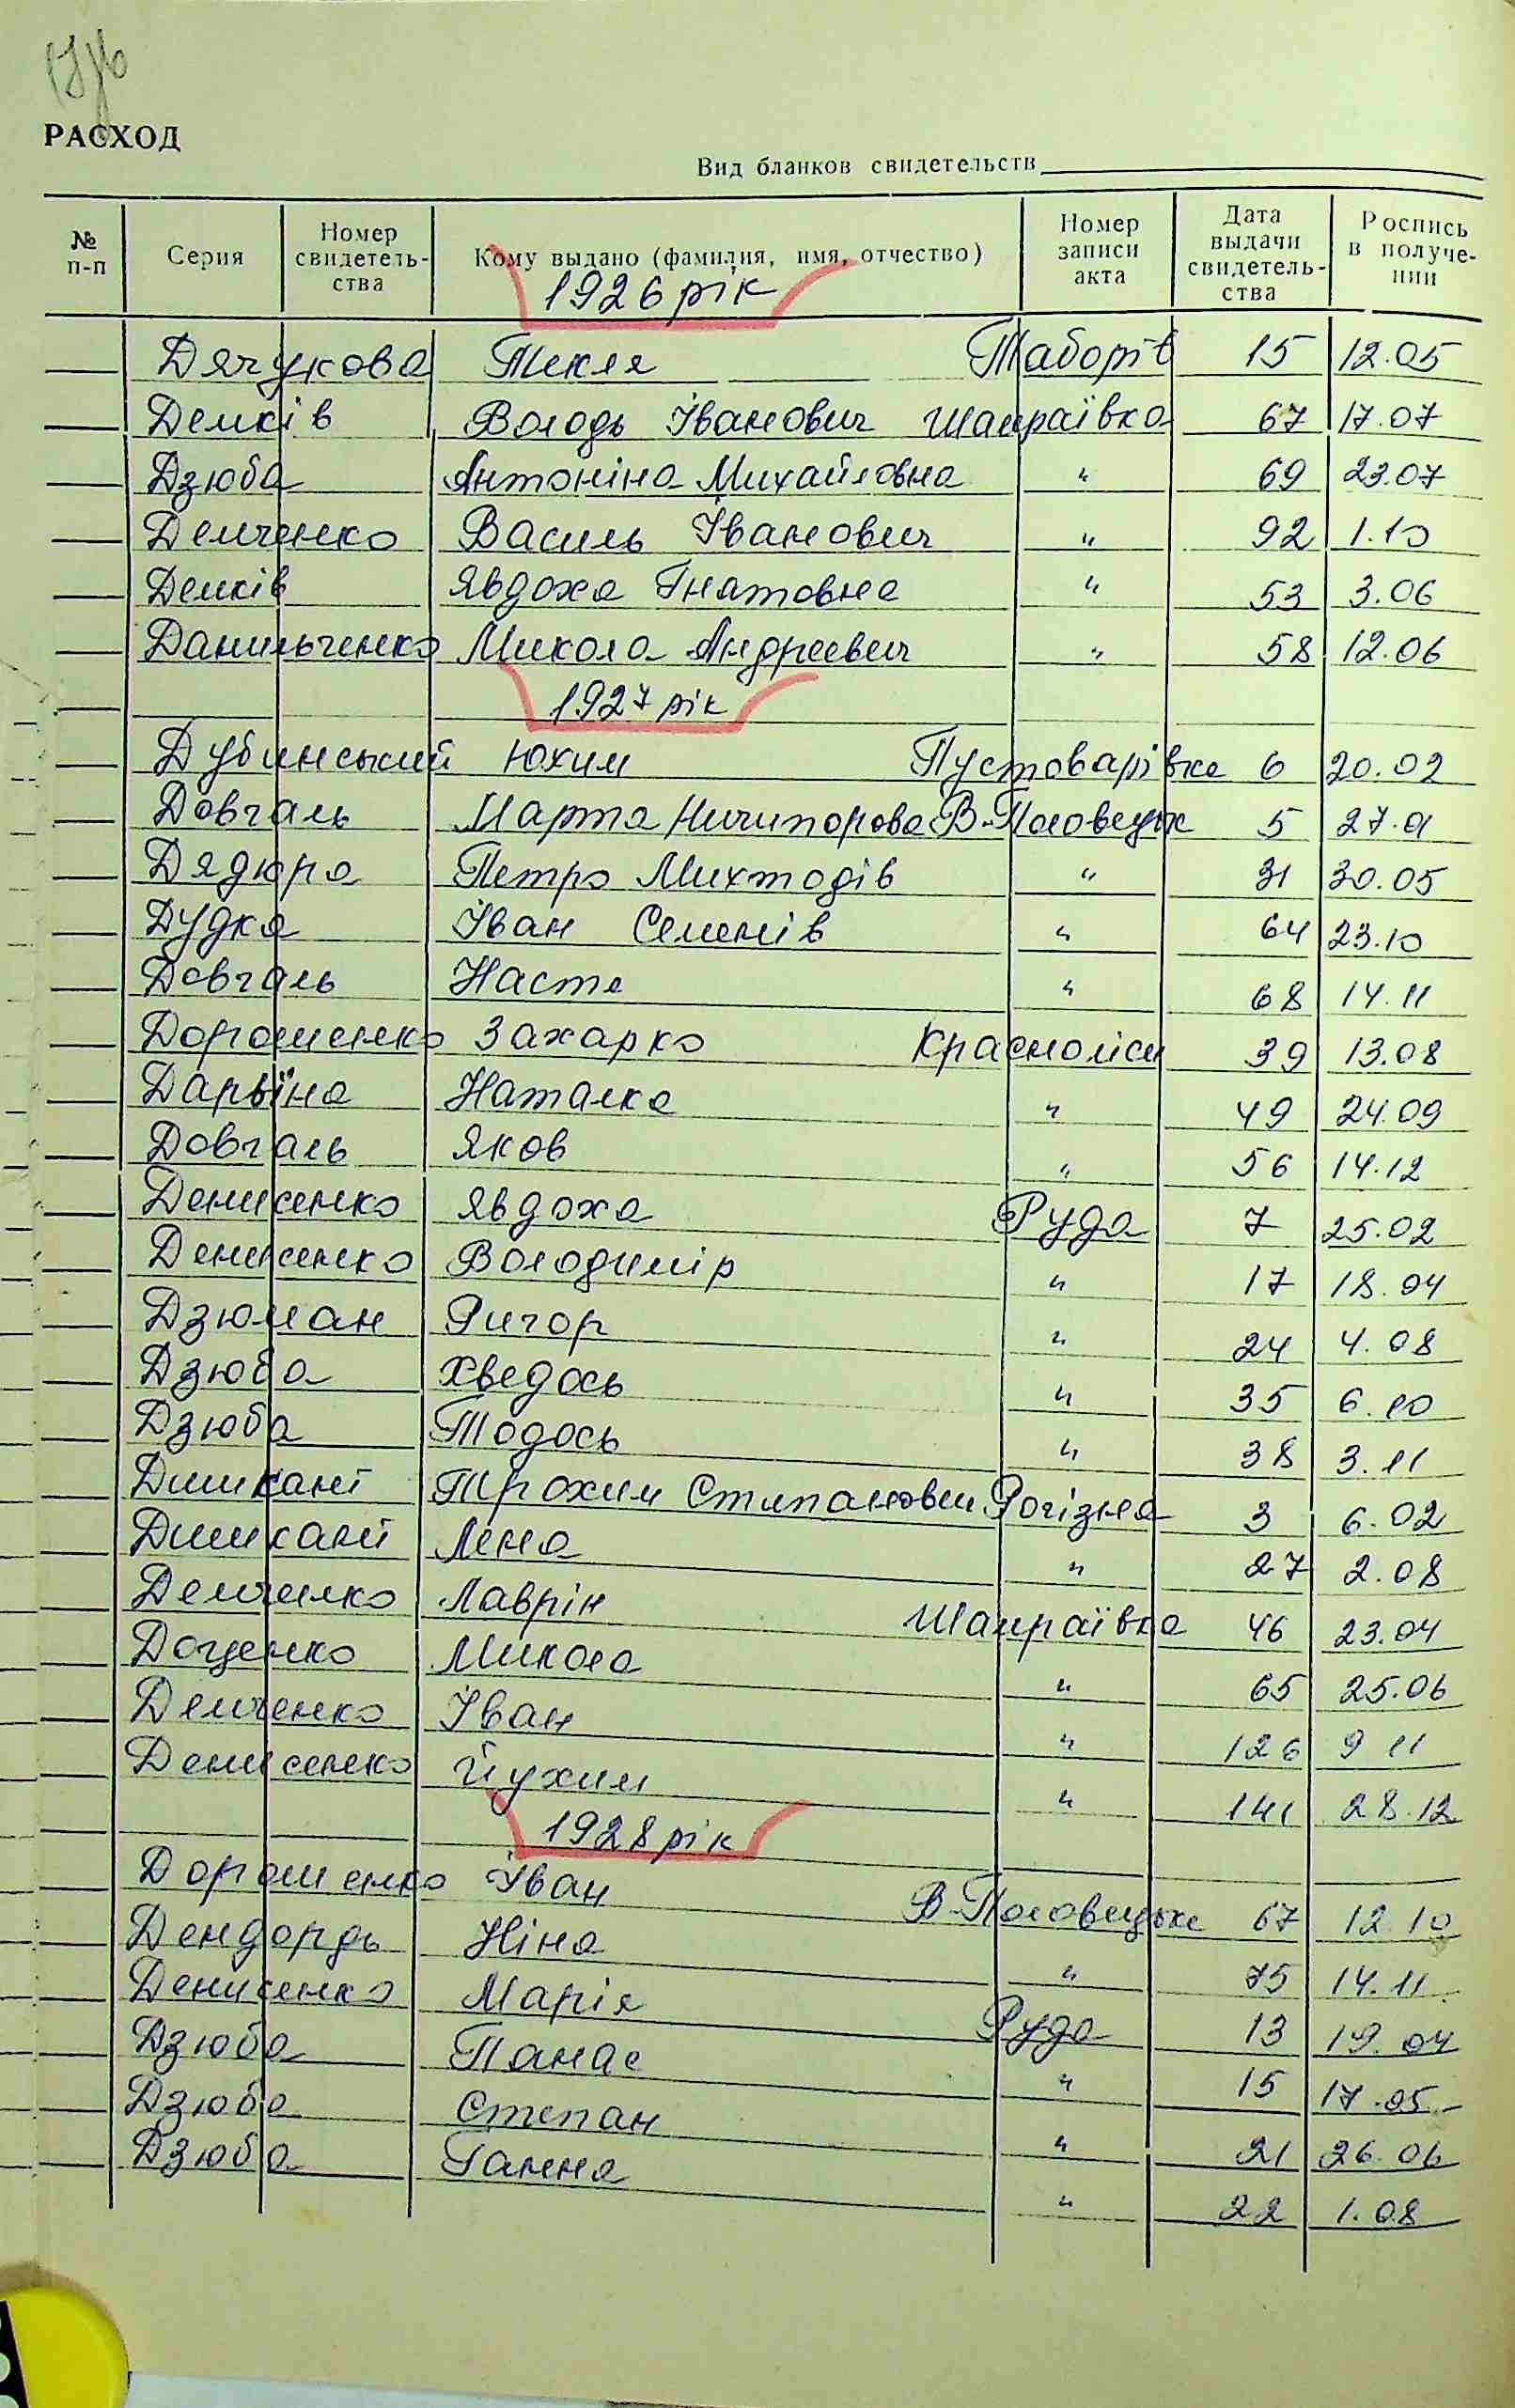 РАСХОД
Вид бланков свидетельств
№ п-п Серия Номер свидетельства Кому выдано (фамилия, имя, отчество) Номер записи акта Дата выдачи свидетельства Роспись в получении
1926 рік
Дячукова Текля Таборів 15 12.05
Демків Володь Іванович Шамраївка 67 17.07
Дзюба Антоніна Михайловна " 69 23.07
Демченко Василь Іванович " 92 1.10
Демків Явдоха Гнатовна " 53 3.06
Данильченко Микола Андреевич " 58 12.06
1927 рік
Дубинський Юхим Пустоварівка 6 20.02
Довгаль Марта Ничипорова В-Половецьке 5 27.01
Дядюра Петро Михтодів " 31 30.05
Дудка Іван Семенів " 64 23.10
Довгаль Настя " 68 14.11
Дорошенко Захарко Красноліси 39 13.08
Дарвіна Наталка " 49 24.09
Довгаль Яков " 56 14.12
Денисенко Явдоха Руда 7 25.02
Денисенко Володимір " 17 18.04
Дзюман Григор " 24 4.08
Дзюба Хведось " 35 6.10
Дзюба Тодось " 38 3.11
Дишкант Трохим Степанович Рогізна 3 6.02
Дишкант Лена " 27 2.08
Демченко Лаврін Шамраївка 46 23.04
Доценко Микола " 65 25.06
Демченко Іван " 126 9 11
Денисенко Йухим " 141 28.12
1928 рік
Дорошенко Іван В-Половецьке 67 12 10
Дендордь Ніна " 75 14.11
Денисенко Марія Руда 13 19.04
Дзюба Панас " 15 17.05
Дзюба Степан " 21 26.06
Дзюба Ганна " 22 1.08